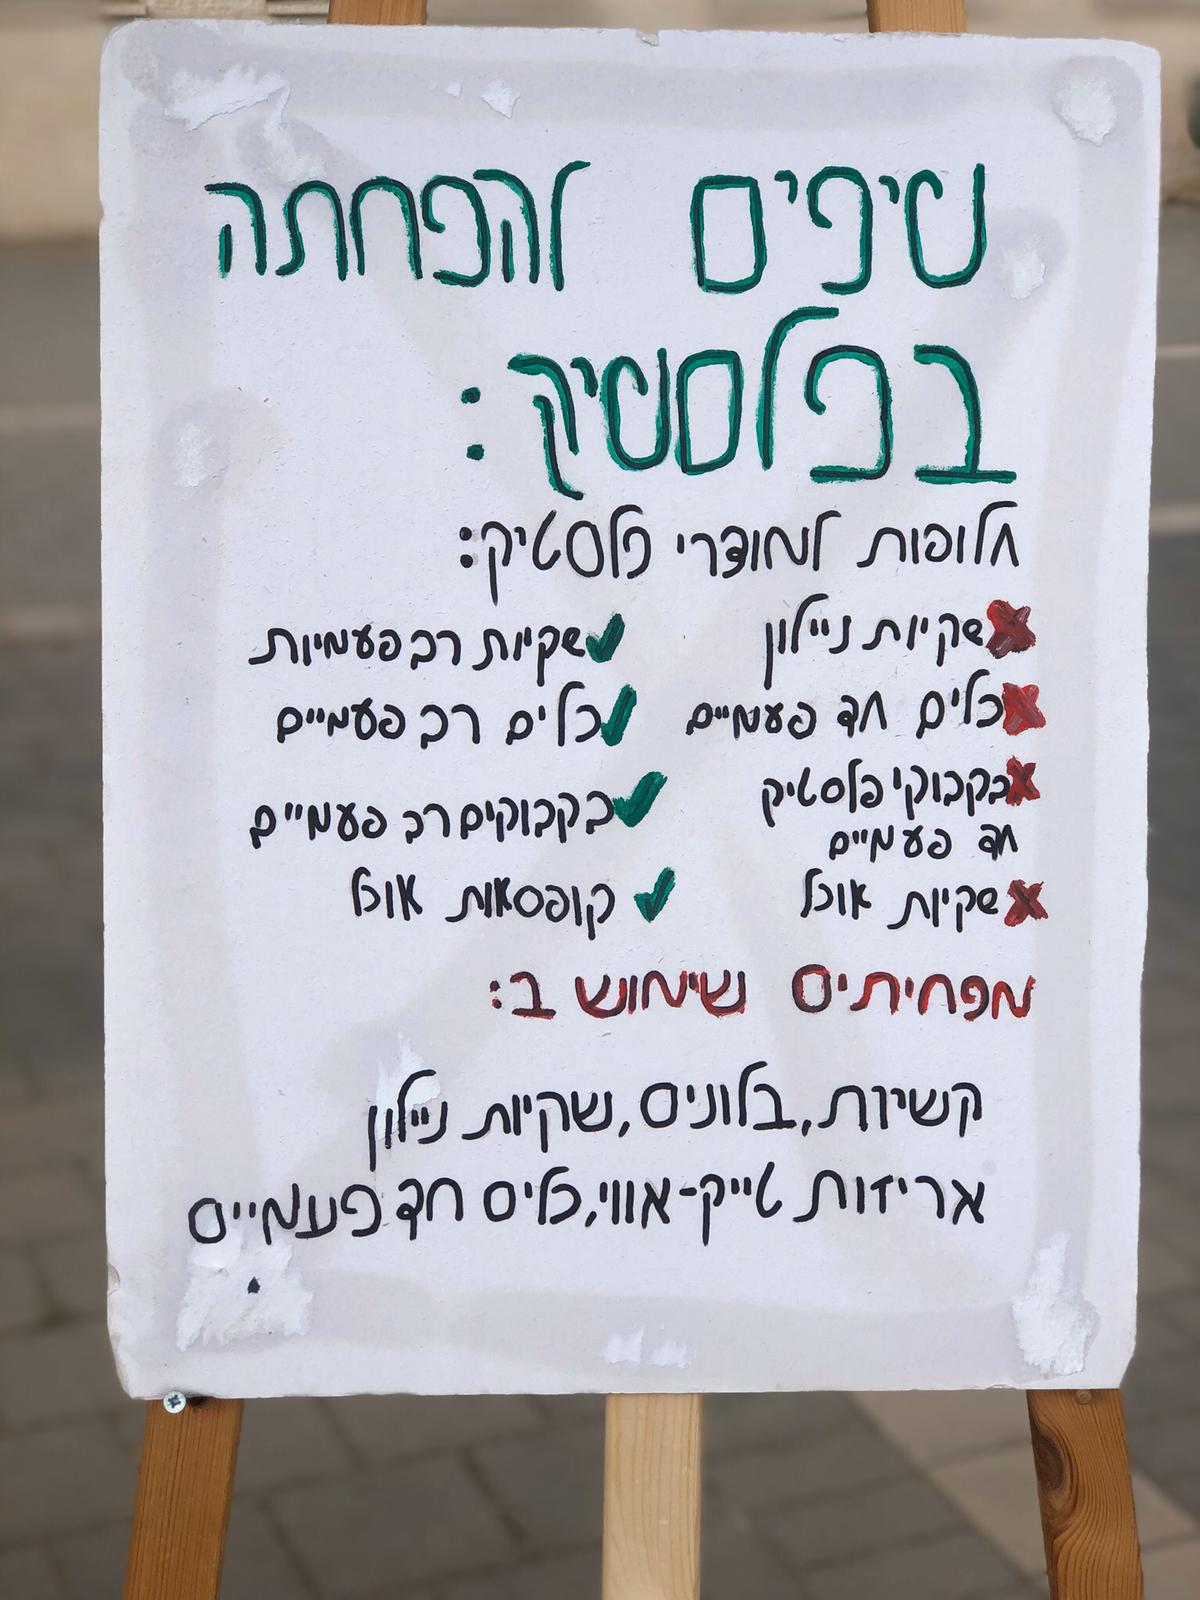 טיפים להפחתה
בפלסטיק:
חלופות למוצרי פלסטיק:
❌שקיות ניילון ✔שקיות רב פעמיות
❌כלים חד פעמיים ✔כלים רב פעמיים
❌בקבוקי פלסטיק ✔בקבוקים רב פעמיים
חד פעמיים
❌שקיות אוכל ✔קופסאות אוכל
מפחיתים שימוש ב:
קשיות, בלונים, שקיות ניילון
אריזות טייק-אווי, כלים חד פעמיים